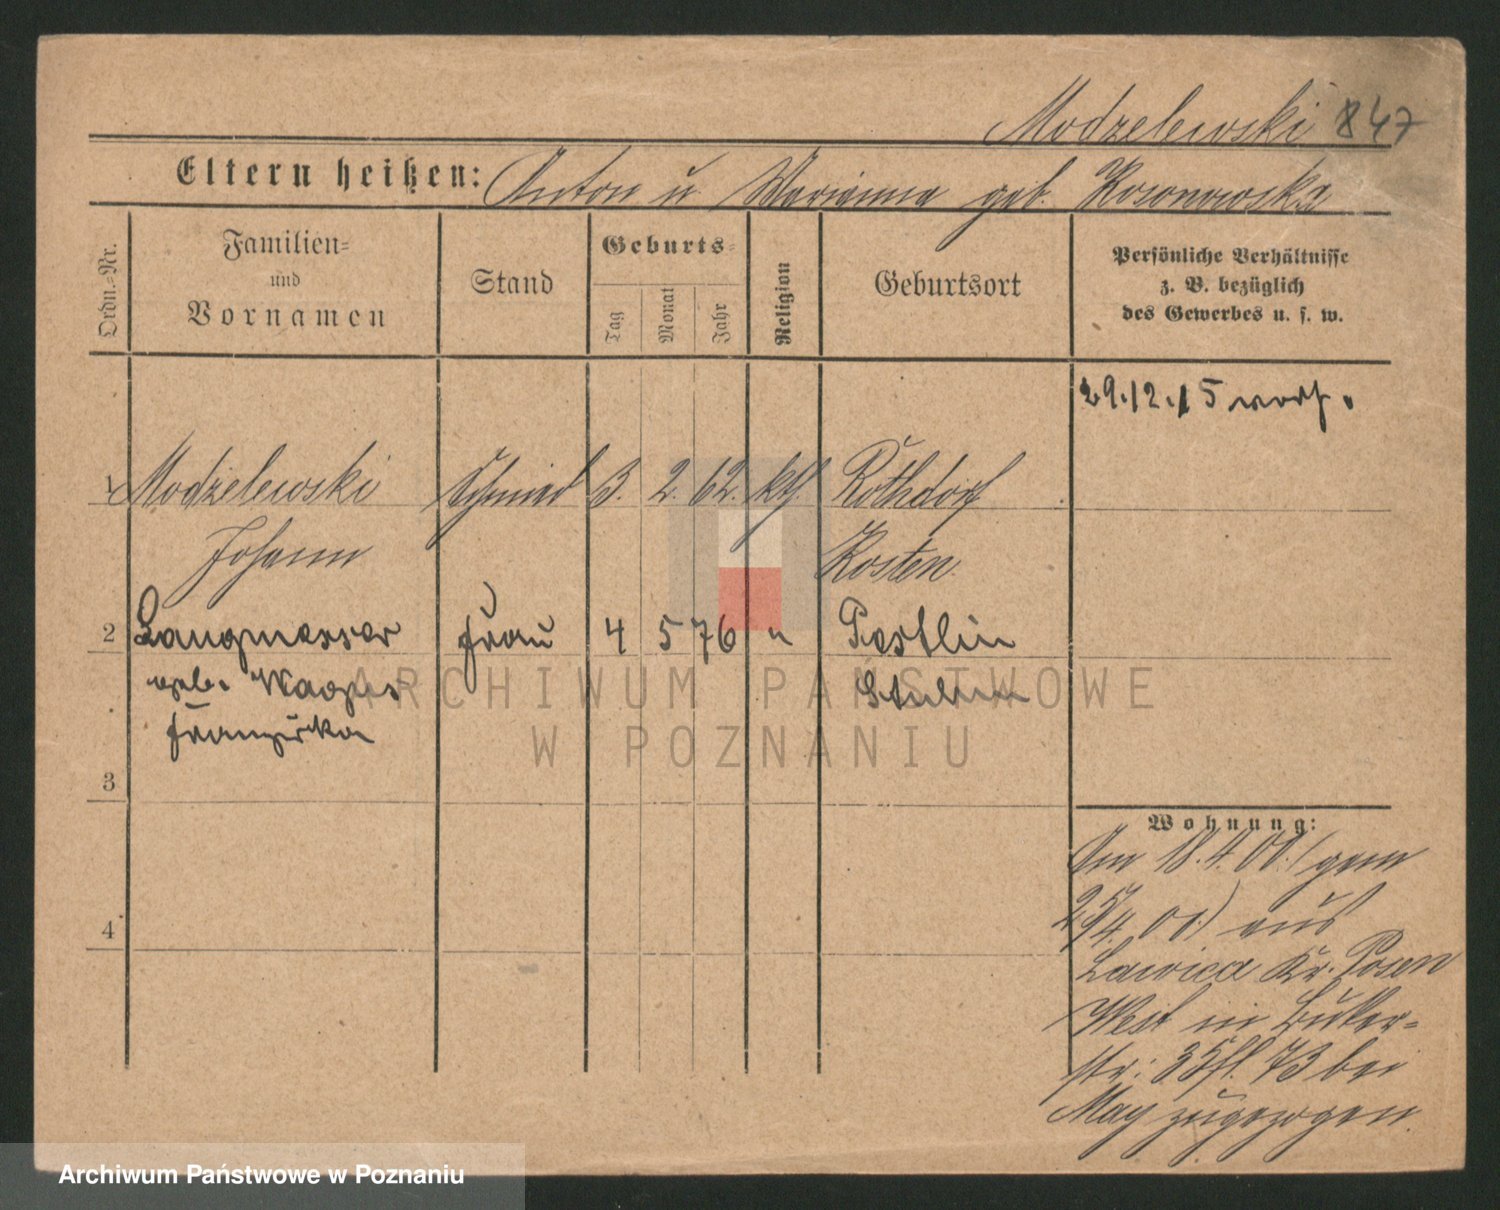 Modzelewski 847
Eltern heißen: Anton u. Marianna geb. Rosonowska
Ordn.-Nr.
Familien-
und
Vornamen
Stand
Geburts-
Tag
Monat
Jahr
Religion
Geburtsort
Persönliche Verhältnisse
z. B. bezüglich
des Gewerbes u. s. w.
29.12.15
1 Modzelewski Schmied 3. 2. 62. kth Rothdorf
Johann Kosten.
2 Langmesser Frau 4 5 76 " Pestlin
geb. Stuhm
Franziska
3
4
Wohnung:
Am 18.4.01. (gem
25/4. 01.) aus
Lawica Kr. Posen
West in Buker-
str. 35 fl. 73 bei
May zugezogen.
ARCHIWUM PAŃSTWOWE
W POZNANIU
Archiwum Państwowe w Poznaniu